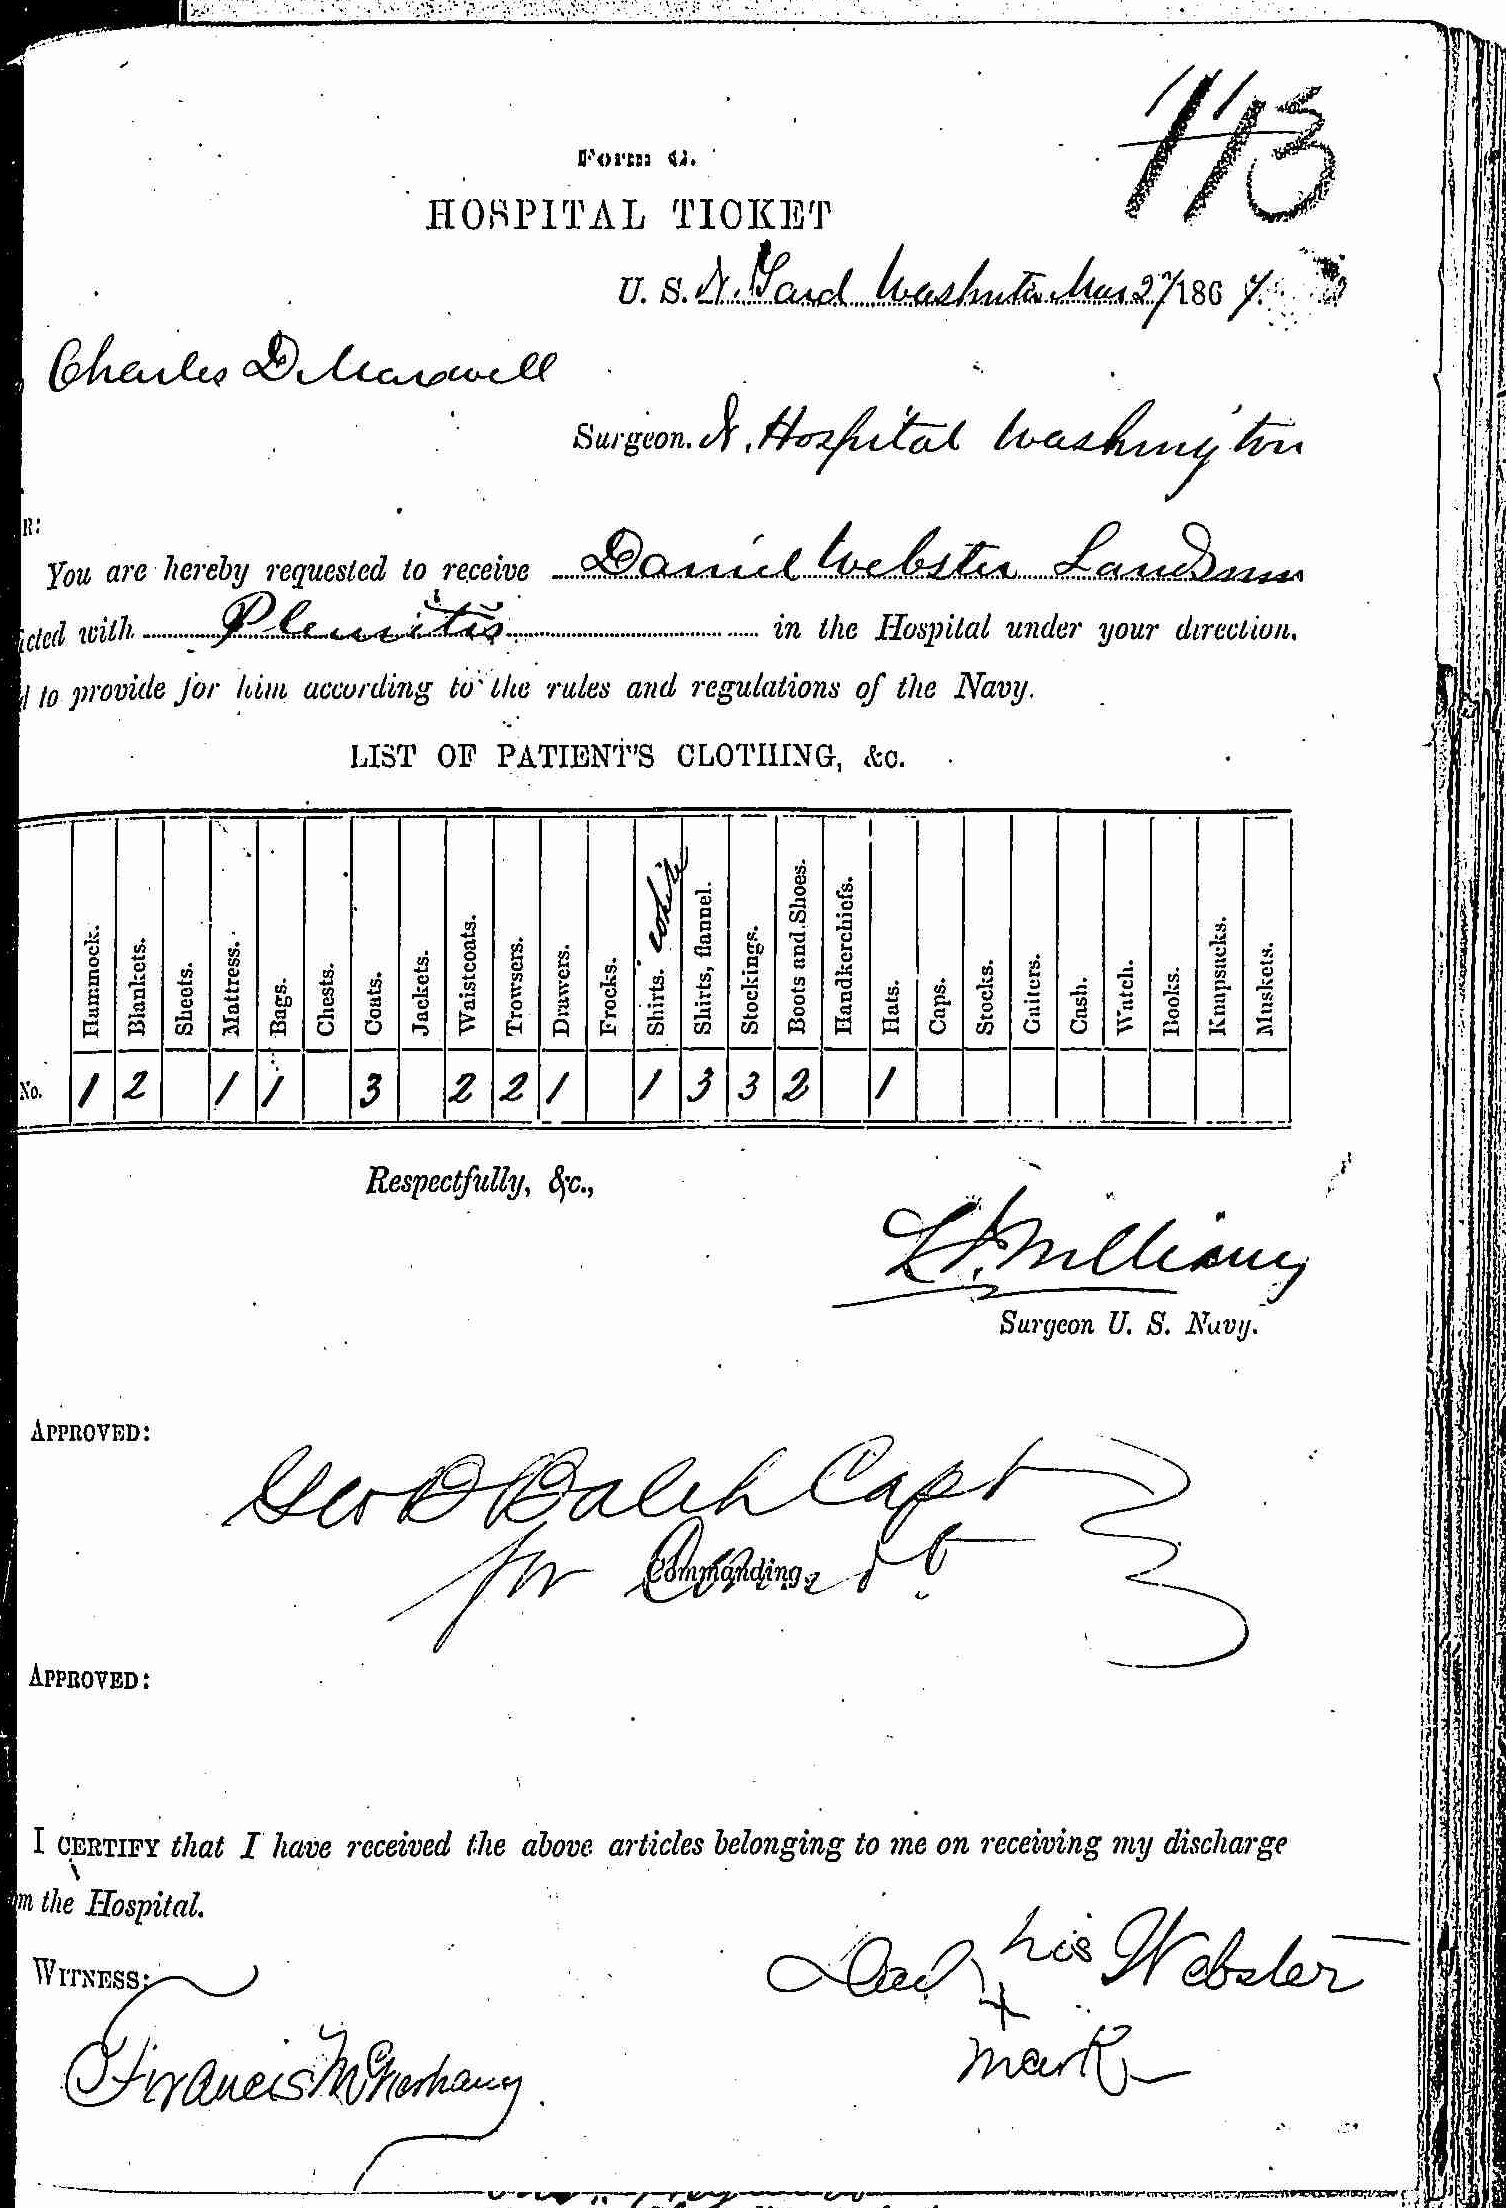 113
Form G.
HOSPITAL TICKET
U. S. N. Yard Washntn Mar 27/1867.
Charles D. Maxwell
Surgeon. N. Hospital Washington
R:
You are hereby requested to receive Daniel Webster Landsmn
icted with Pleuritis in the Hospital under your direction.
d to provide for him according to the rules and regulations of the Navy.
LIST OF PATIENT'S CLOTHING, &c.
Hammock. Blankets. Sheets. Mattress. Bags. Chests. Coats. Jackets. Waistcoats. Trowsers. Drawers. Frocks. Shirts. white Shirts, flannel. Stockings. Boots and Shoes. Handkerchiefs. Hats. Caps. Stocks. Gaiters. Cash. Watch. Books. Knapsacks. Muskets.
No. 1 2 1 1 3 2 2 1 1 3 3 2 1
Respectfully, &c.,
Williams
Surgeon U. S. Navy.
APPROVED:
Geo B Balch Capt
for Comdt.
Commanding.
APPROVED:
I CERTIFY that I have received the above articles belonging to me on receiving my discharge
om the Hospital.
WITNESS:
his Webster
x
mark
Francis